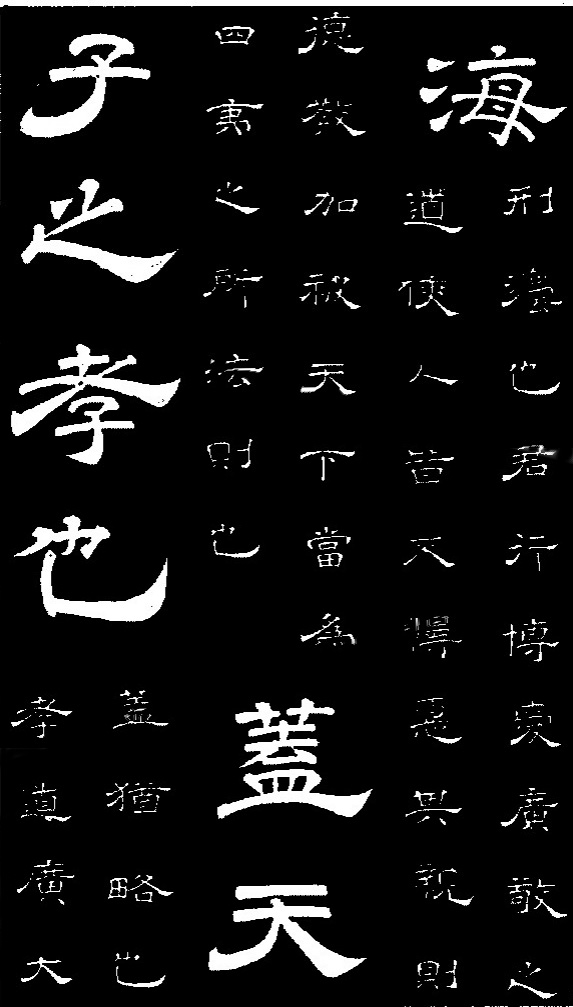 海
刑法也君行博愛廣敬之
道使人皆不慢惡其親則
德教加被天下當為
四夷之所法則也
蓋天
子之孝也
蓋猶略也
孝道廣大